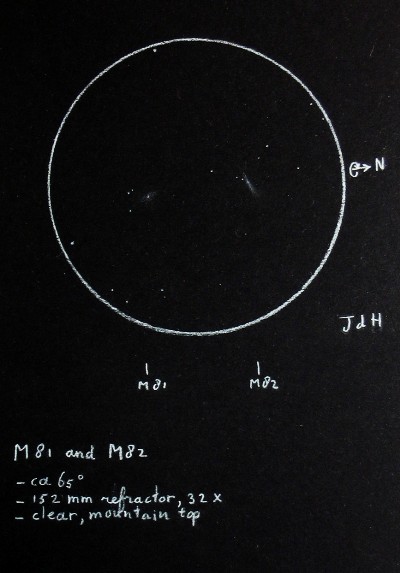 N
J d H
M81 M82
M 81 and M82
- ca 65°
- 152 mm refractor, 32 x
- clear, mountain top